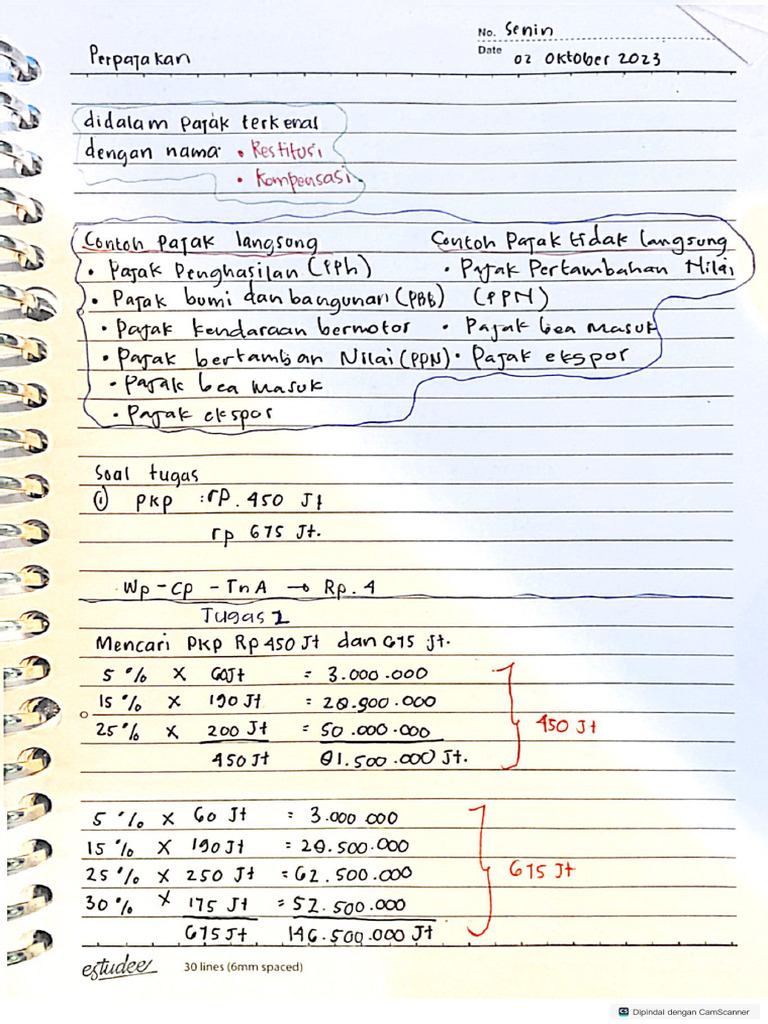 No. Senin
Perpajakan
Date 02 Oktober 2023
didalam pajak terkenal
dengan nama • Restitusi
• Kompensasi
Contoh Pajak langsung
• Pajak Penghasilan (PPh)
• Pajak bumi dan bangunan (PBB)
• Pajak kendaraan bermotor
• Pajak bertamban Nilai (PPN)
• Pajak bea masuk
• Pajak ekspor
Contoh Pajak tidak langsung
• Pajak Pertambahan Nilai
(PPN)
• Pajak bea masuk
• Pajak ekspor
Soal tugas
① PKP : rp. 450 Jt
rp 675 Jt.
Wp - Cp - TnA → Rp. 4
Tugas 1
Mencari PKP Rp 450 Jt dan 675 Jt.
5 % x 60Jt = 3.000.000
15 % x 190 Jt = 28.500.000
25 % x 200 Jt = 50.000.000
450 Jt 81.500.000 Jt.
450 Jt
5 % x 60 Jt = 3.000 000
15 % x 190 Jt = 28.500.000
25 % x 250 Jt = 62.500.000
30 % x 175 Jt = 52.500.000
675 Jt 146.500.000 Jt
675 Jt
estudee 30 lines (6mm spaced)
CS Dipindai dengan CamScanner